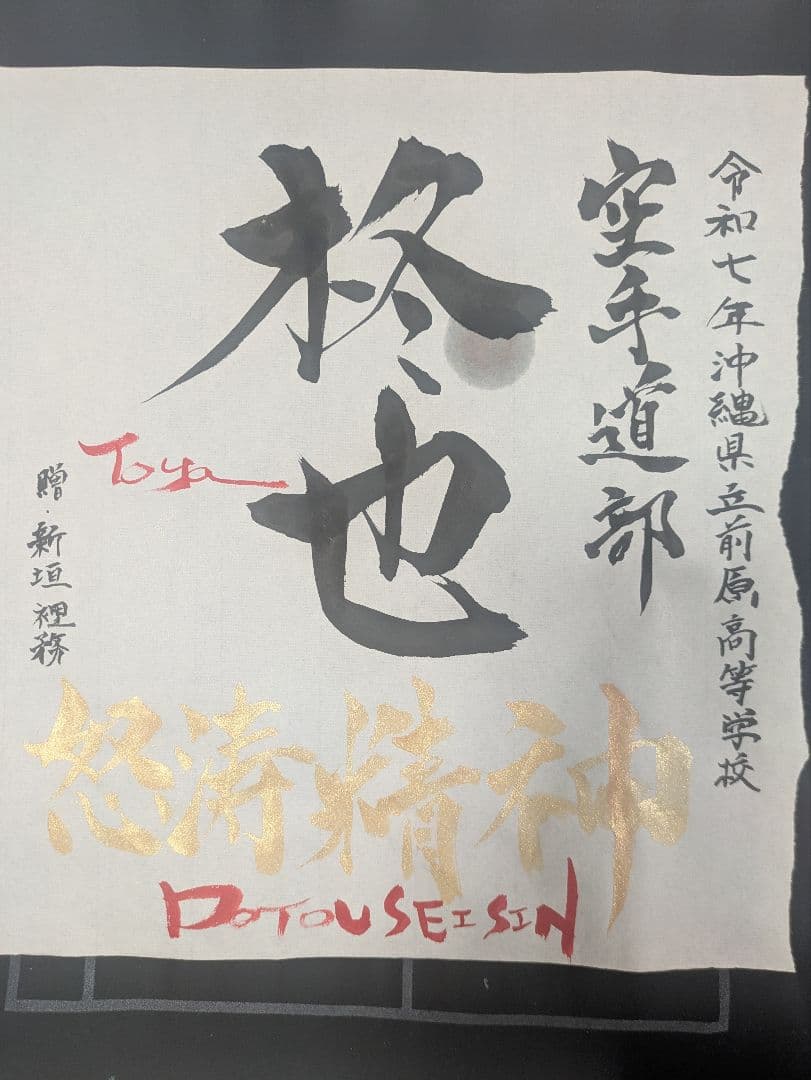 令和七年沖縄県立前原高等学校
空手道部
柊也
Toya
贈・新垣裡務
怒涛精神
DOTOUSEISIN